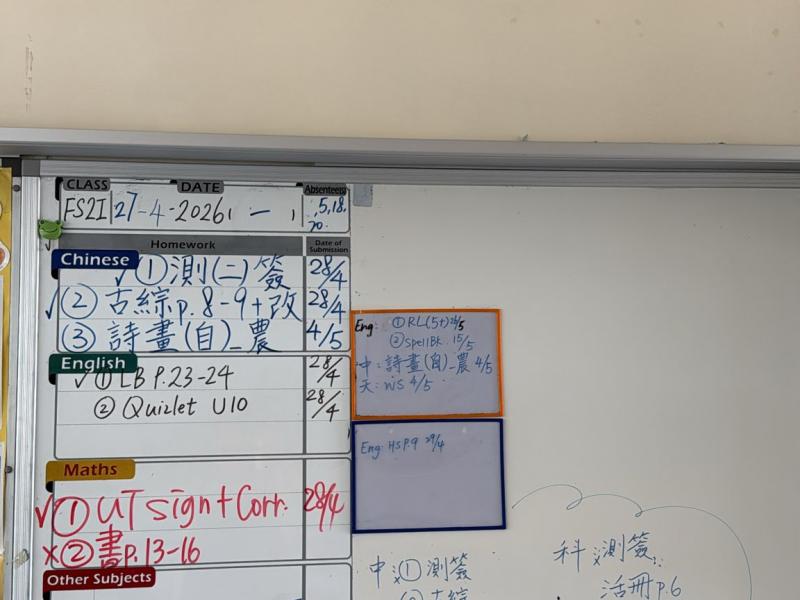 CLASS DATE Absentees
FS2I 27-4-2026, 一 , 5,18,
20.
Homework Date of Submission
Chinese
✓①測(二)簽 28/4
✓②古綜p.8-9+改 28/4
③詩畫(自)_農 4/5
English
✓①LB P.23-24 28/4
②Quizlet U10 28/4
Maths
✓①UT sign+Corr. 28/4
×②書p.13-16
Other Subjects
Eng: ①RL(5+)
②SpellBk. 15/5
中: 詩畫(自)_農 4/5
天: WS 4/5
Eng: HS P.9 29/4
中×①測簽
②古綜
科×測簽
活冊p.6